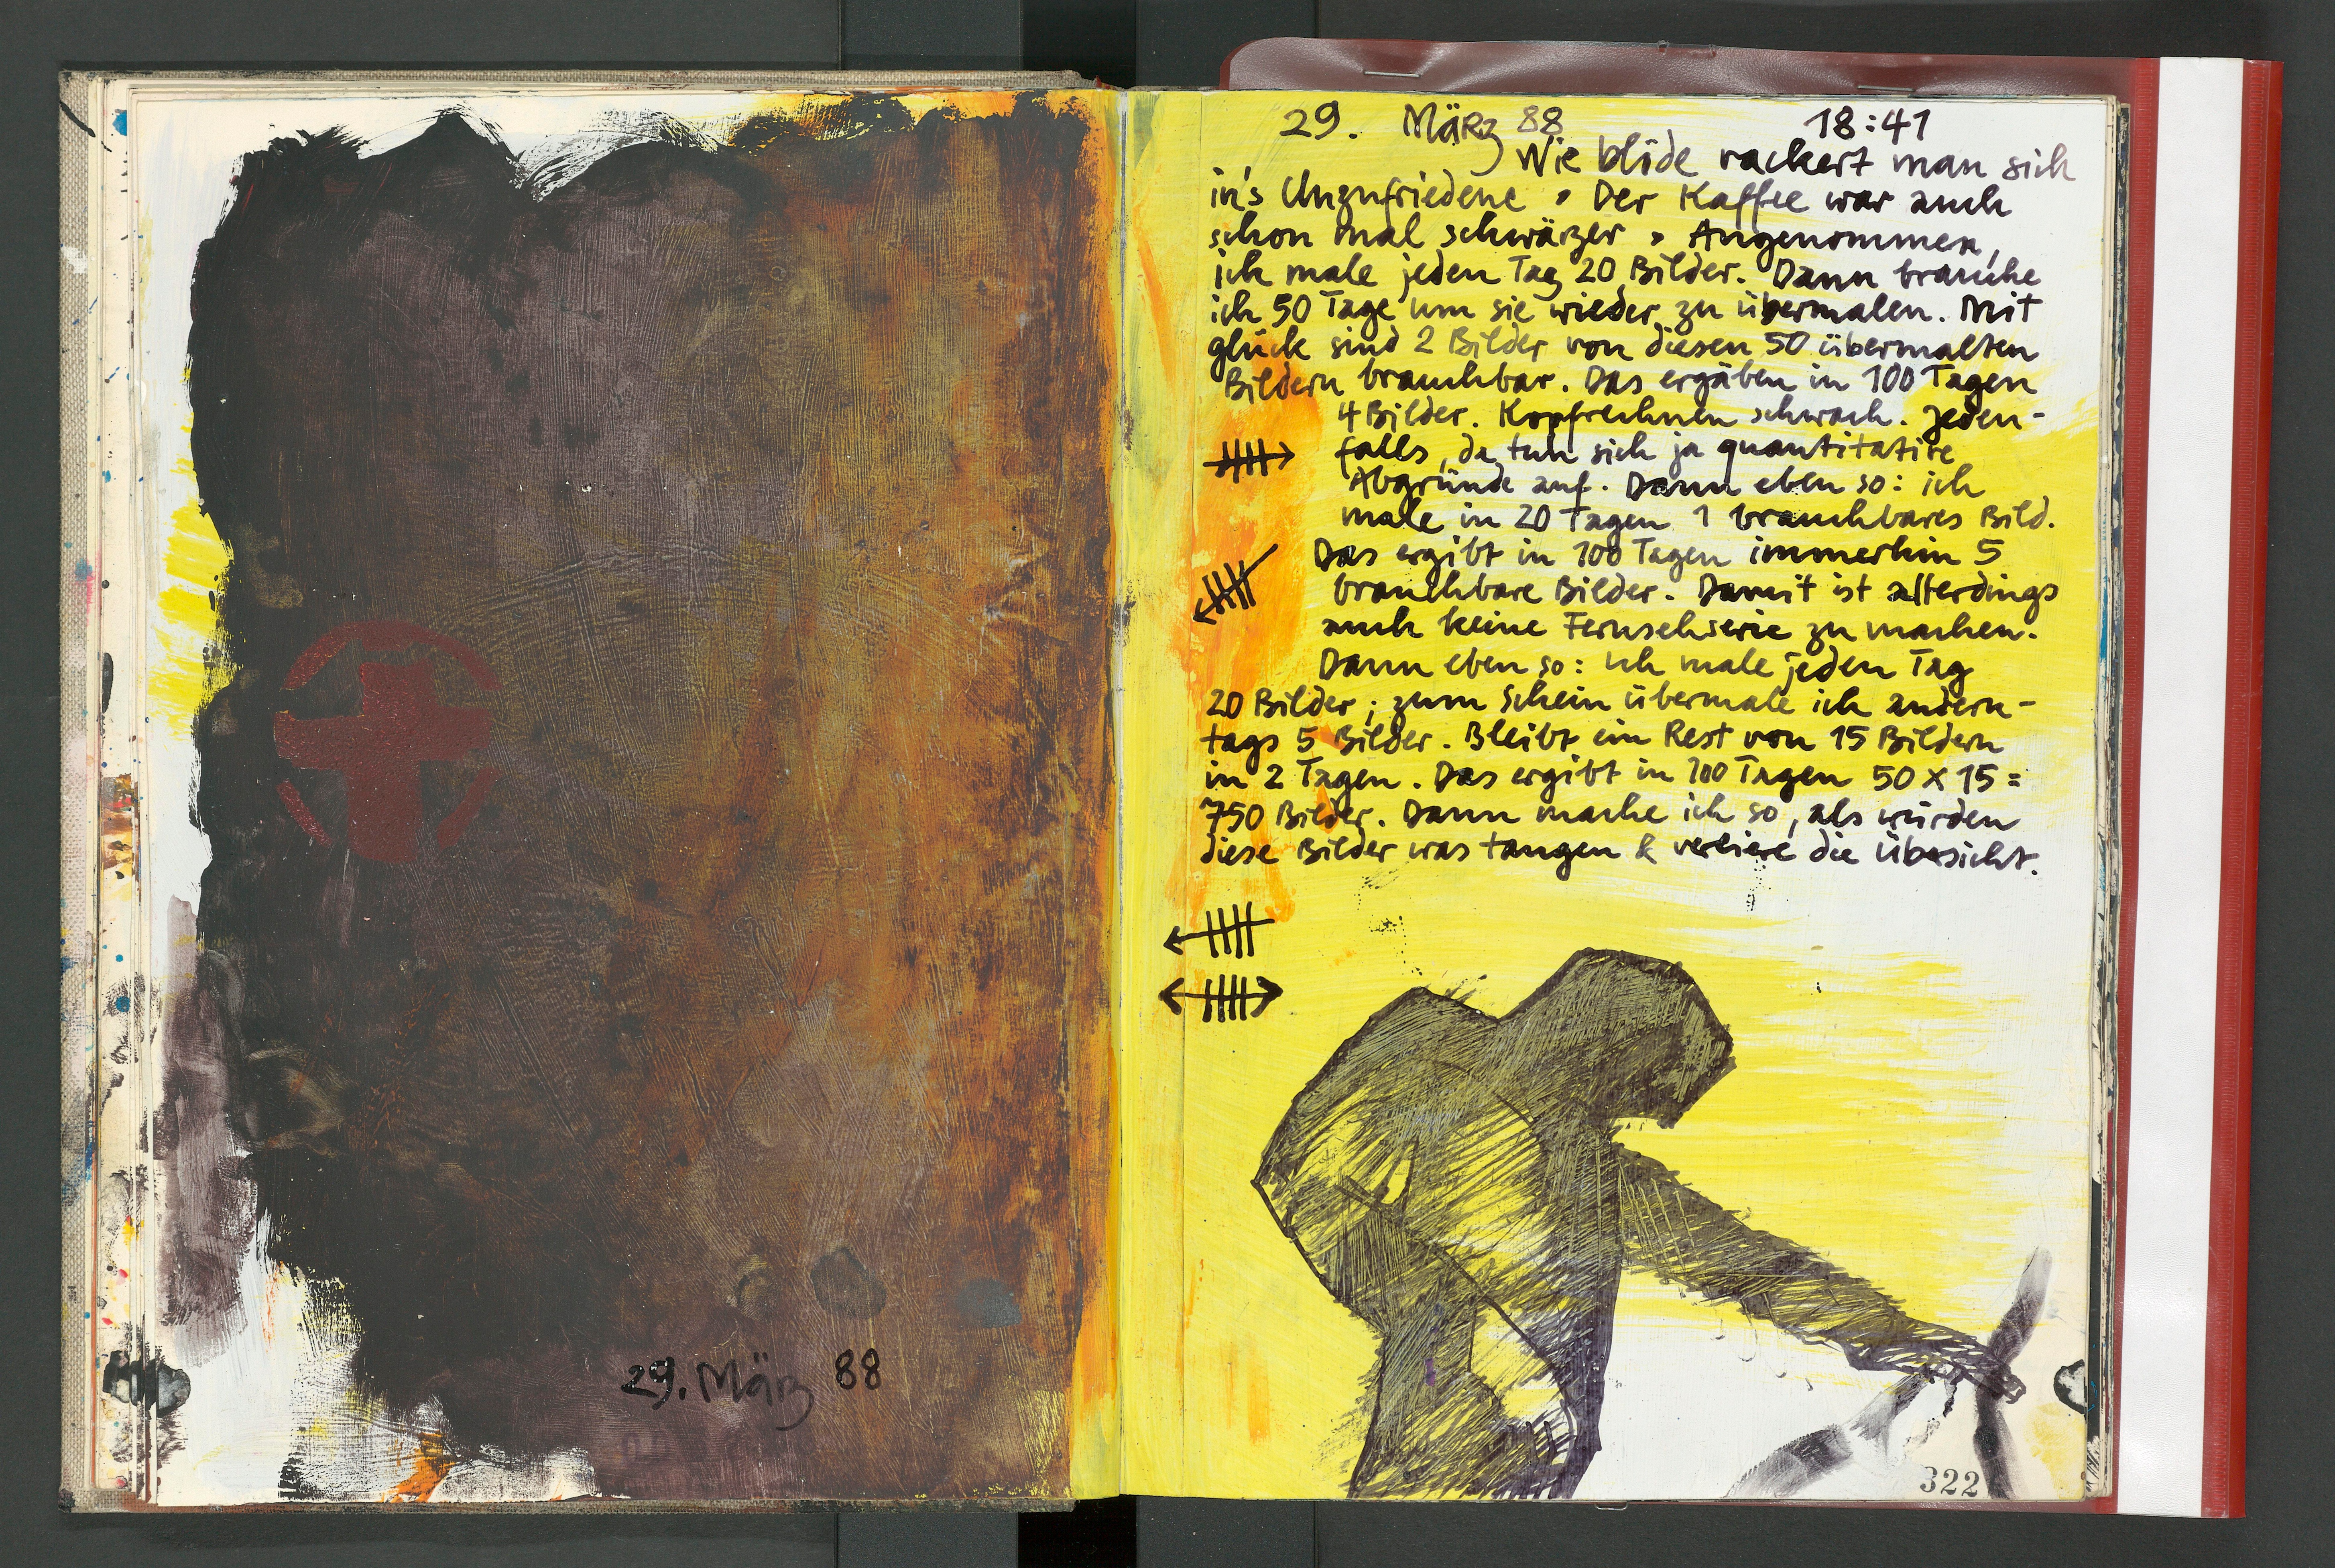 29. März 88
29. März 88 18:41
Wie blöde rackert man sich
in's Unzufriedene. Der Kaffee war auch
schon mal schwärzer. Angenommen,
ich male jeden Tag 20 Bilder. Dann brauche
ich 50 Tage um sie wieder zu übermalen. Mit
glück sind 2 Bilder von diesen 50 übermalten
Bildern brauchbar. Das ergäben in 100 Tagen
4 Bilder. Kopfrechnen schwach. Jeden-
falls, da tun sich ja quantitative
Abgründe auf. Dann eben so: ich
male in 20 Tagen 1 brauchbares Bild.
Das ergibt in 100 Tagen immerhin 5
brauchbare Bilder. Damit ist allerdings
auch keine Fernsehserie zu machen.
Dann eben so: ich male jeden Tag
20 Bilder; zum Schein übermale ich andern-
tags 5 Bilder. Bleibt ein Rest von 15 Bildern
in 2 Tagen. Das ergibt in 100 Tagen 50 x 15 =
750 Bilder. Dann mache ich so, als würden
diese Bilder was taugen & verliere die Übersicht.
322